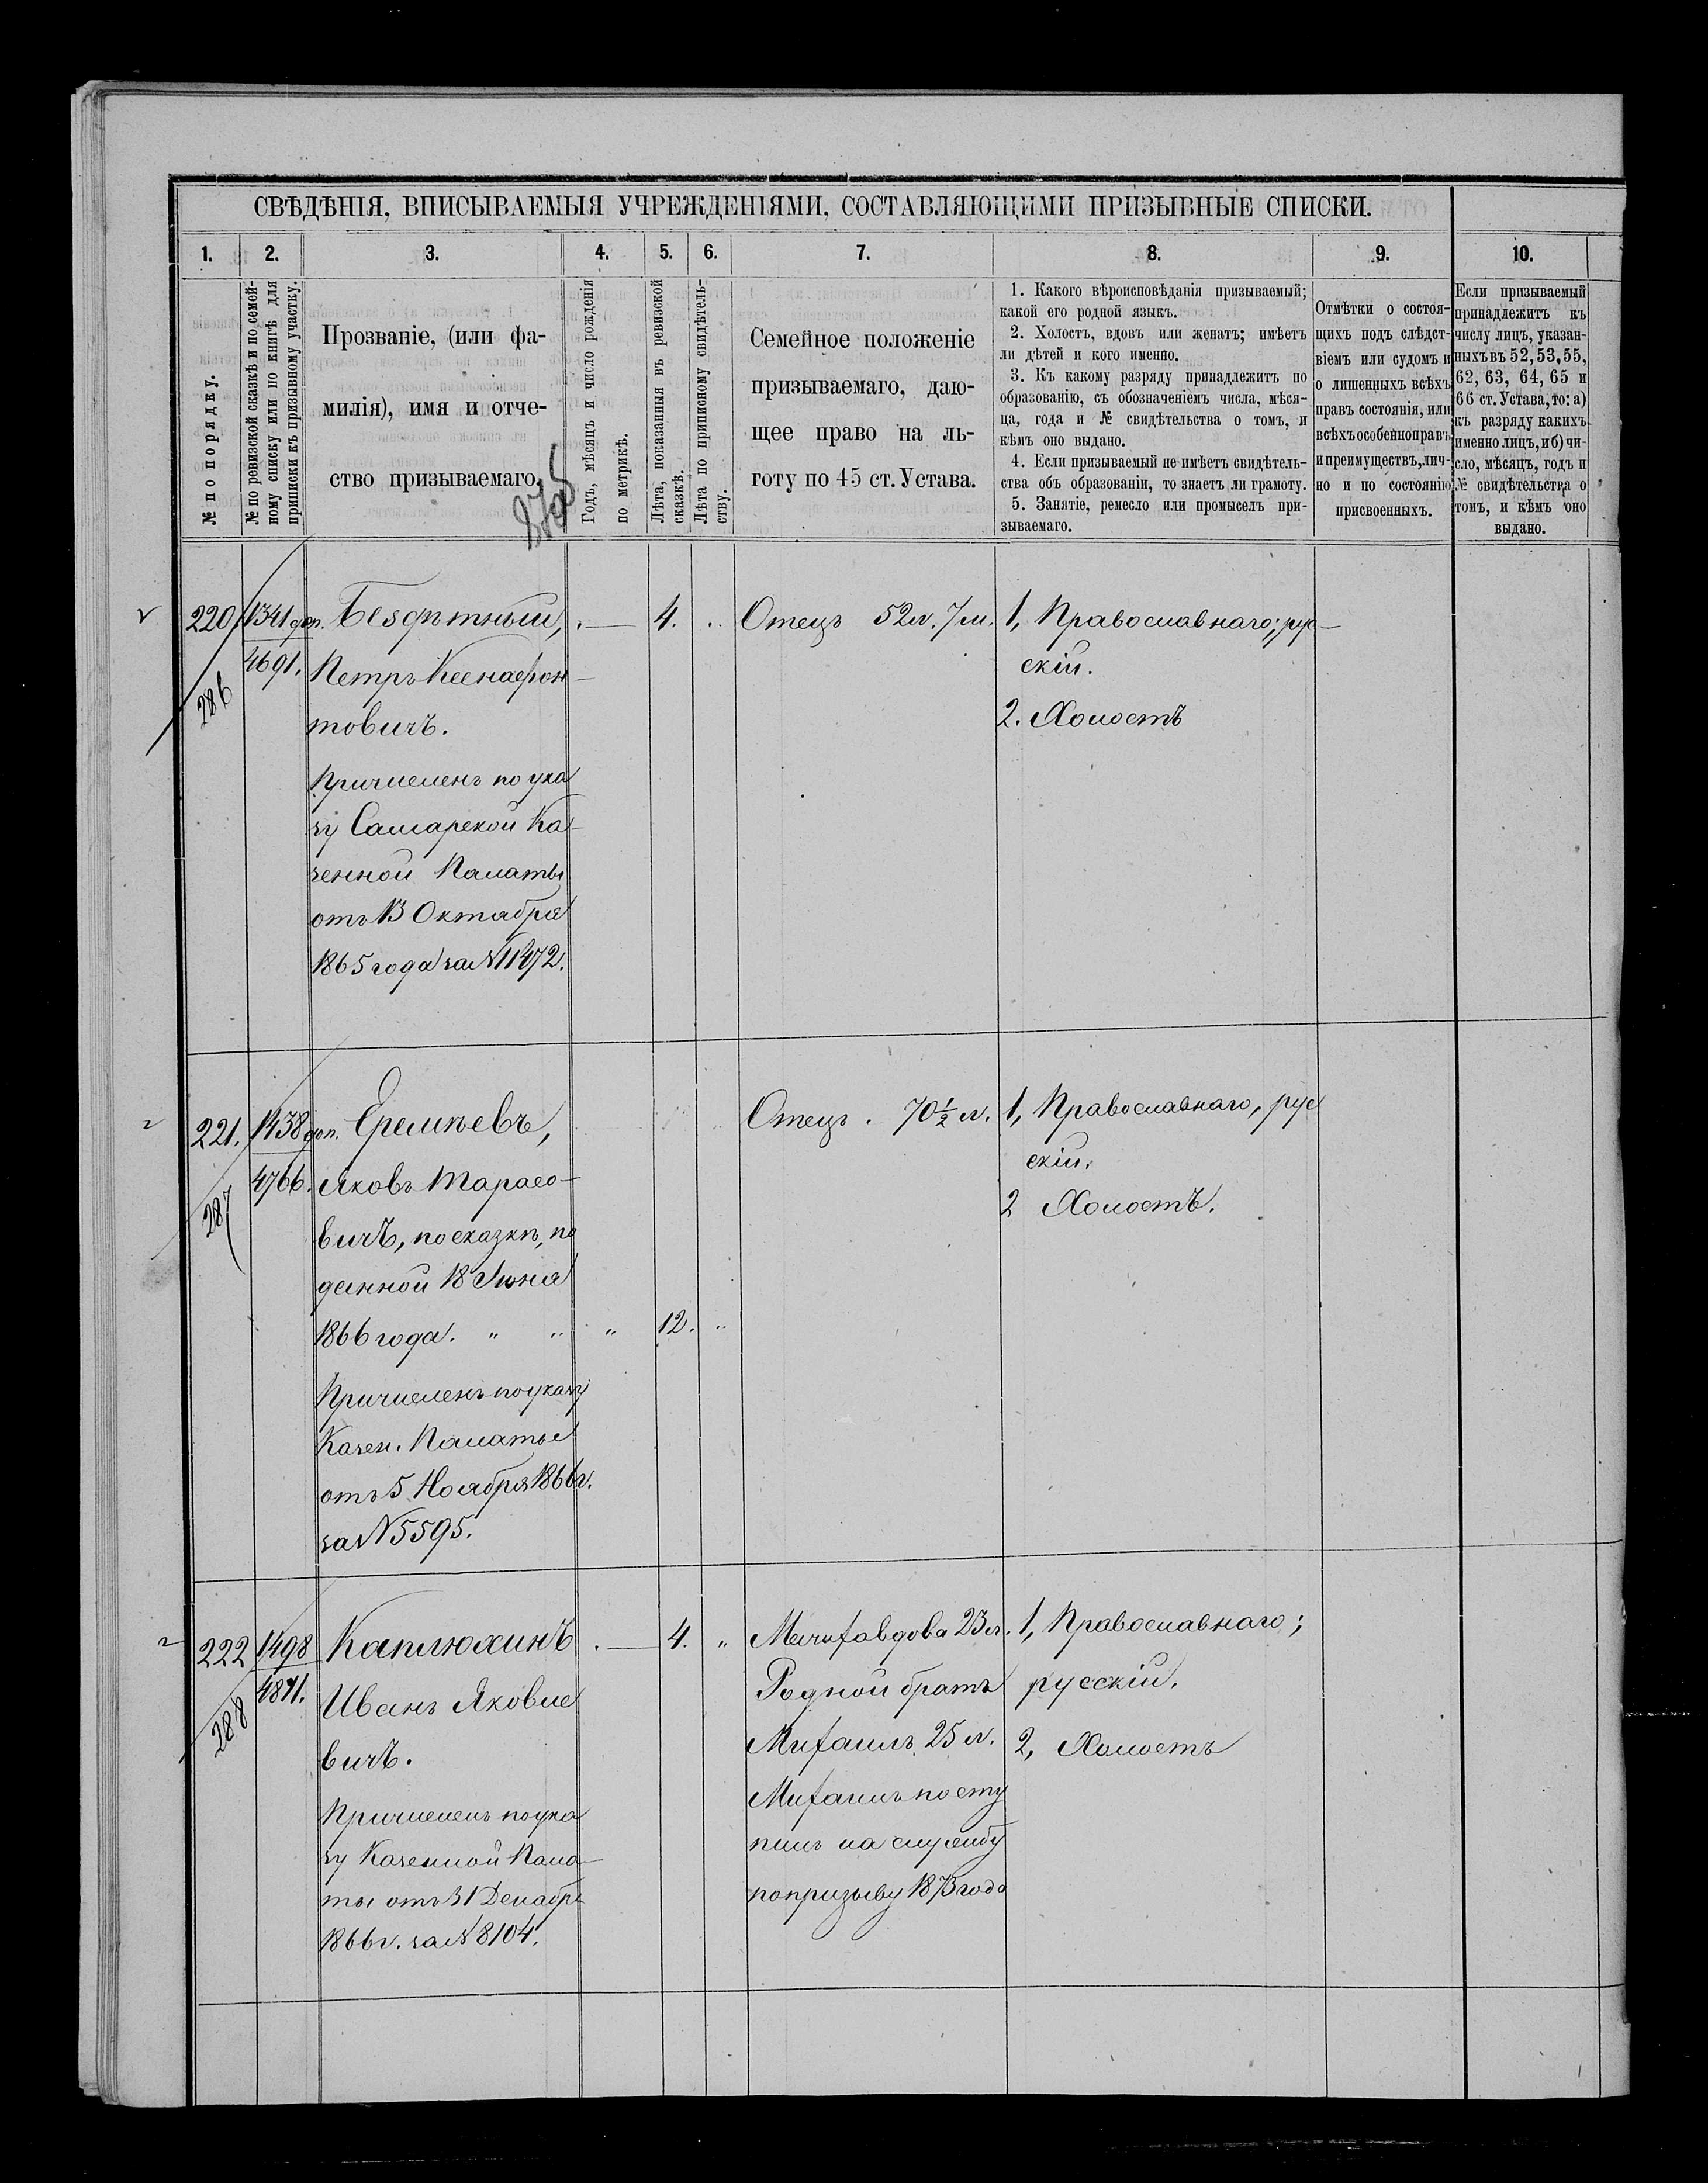 СВѢДѢНІЯ, ВПИСЫВАЕМЫЯ УЧРЕЖДЕНІЯМИ, СОСТАВЛЯЮЩИМИ ПРИЗЫВНЫЕ СПИСКИ.
1. 2. 3. 4. 5. 6. 7. 8. 9. 10.
№ по порядку.
№ по ревизской сказкѣ и по семей-
ному списку или по книгѣ для
приписки къ призывному участку.
Прозваніе, (или фа-
милія), имя и отче-
ство призываемаго.
Годъ, мѣсяцъ и число рожденія
по метрикѣ.
Лѣта, показанныя въ ревизской
сказкѣ.
Лѣта по приписному свидѣтель-
ству.
Семейное положеніе
призываемаго, даю-
щее право на ль-
готу по 45 ст. Устава.
1. Какого вѣроисповѣданія призываемый;
какой его родной языкъ.
2. Холостъ, вдовъ или женатъ; имѣетъ
ли дѣтей и кого именно.
3. Къ какому разряду принадлежитъ по
образованію, съ обозначеніемъ числа, мѣся-
ца, года и № свидѣтельства о томъ, и
кѣмъ оно выдано.
4. Если призываемый не имѣетъ свидѣтель-
ства объ образованіи, то знаетъ ли грамоту.
5. Занятіе, ремесло или промыселъ при-
зываемаго.
Отмѣтки о состоя-
щихъ подъ слѣдст-
віемъ или судомъ и
о лишенныхъ всѣхъ
правъ состоянія, или
всѣхъ особенно правъ
и преимуществъ, лич-
но и по состоянію
присвоенныхъ.
Если призываемый
принадлежитъ къ
числу лицъ, указан-
ныхъ въ 52, 53, 55,
62, 63, 64, 65 и
66 ст. Устава, то: а)
къ разряду какихъ
именно лицъ, и б) чи-
сло, мѣсяцъ, годъ и
№ свидѣтельства о
томъ, и кѣмъ оно
выдано.
220 1341 доп. Бездѣтный, . — 4. „ Отецъ 52 л. 7 м. 1, Православнаго; рус-
286 4691. Петръ Ксенофон- скій.
товичъ. 2. Холостъ
Причисленъ по ука
зу Самарской Ка-
зенной Палаты
отъ 13 Октября
1865 года за № 11472.
221. 1438 доп. Еремѣевъ, Отецъ . 70½ л. 1, Православнаго, рус
287 4766. Яковъ Тарасо- скій.
вичъ, по сказкѣ, по 2 Холостъ.
данной 18 Іюня
1866 года. „ „ „ 12. „
Причисленъ по указу
Казен. Палаты
отъ 5 Ноября 1866 г.
за № 5595.
222 1498 Каплюхинъ . — 4. „ 23 л. 1, Православнаго;
288 Иванъ Яковле Родной братъ русскій.
вичъ. Михаилъ 25 л. 2, Холостъ
Причисленъ по ука Михаилъ посту
зу Казенной Пала- пилъ на службу
ты отъ 31 Декабря по призыву 1873 года
1866 г. за № 8104.